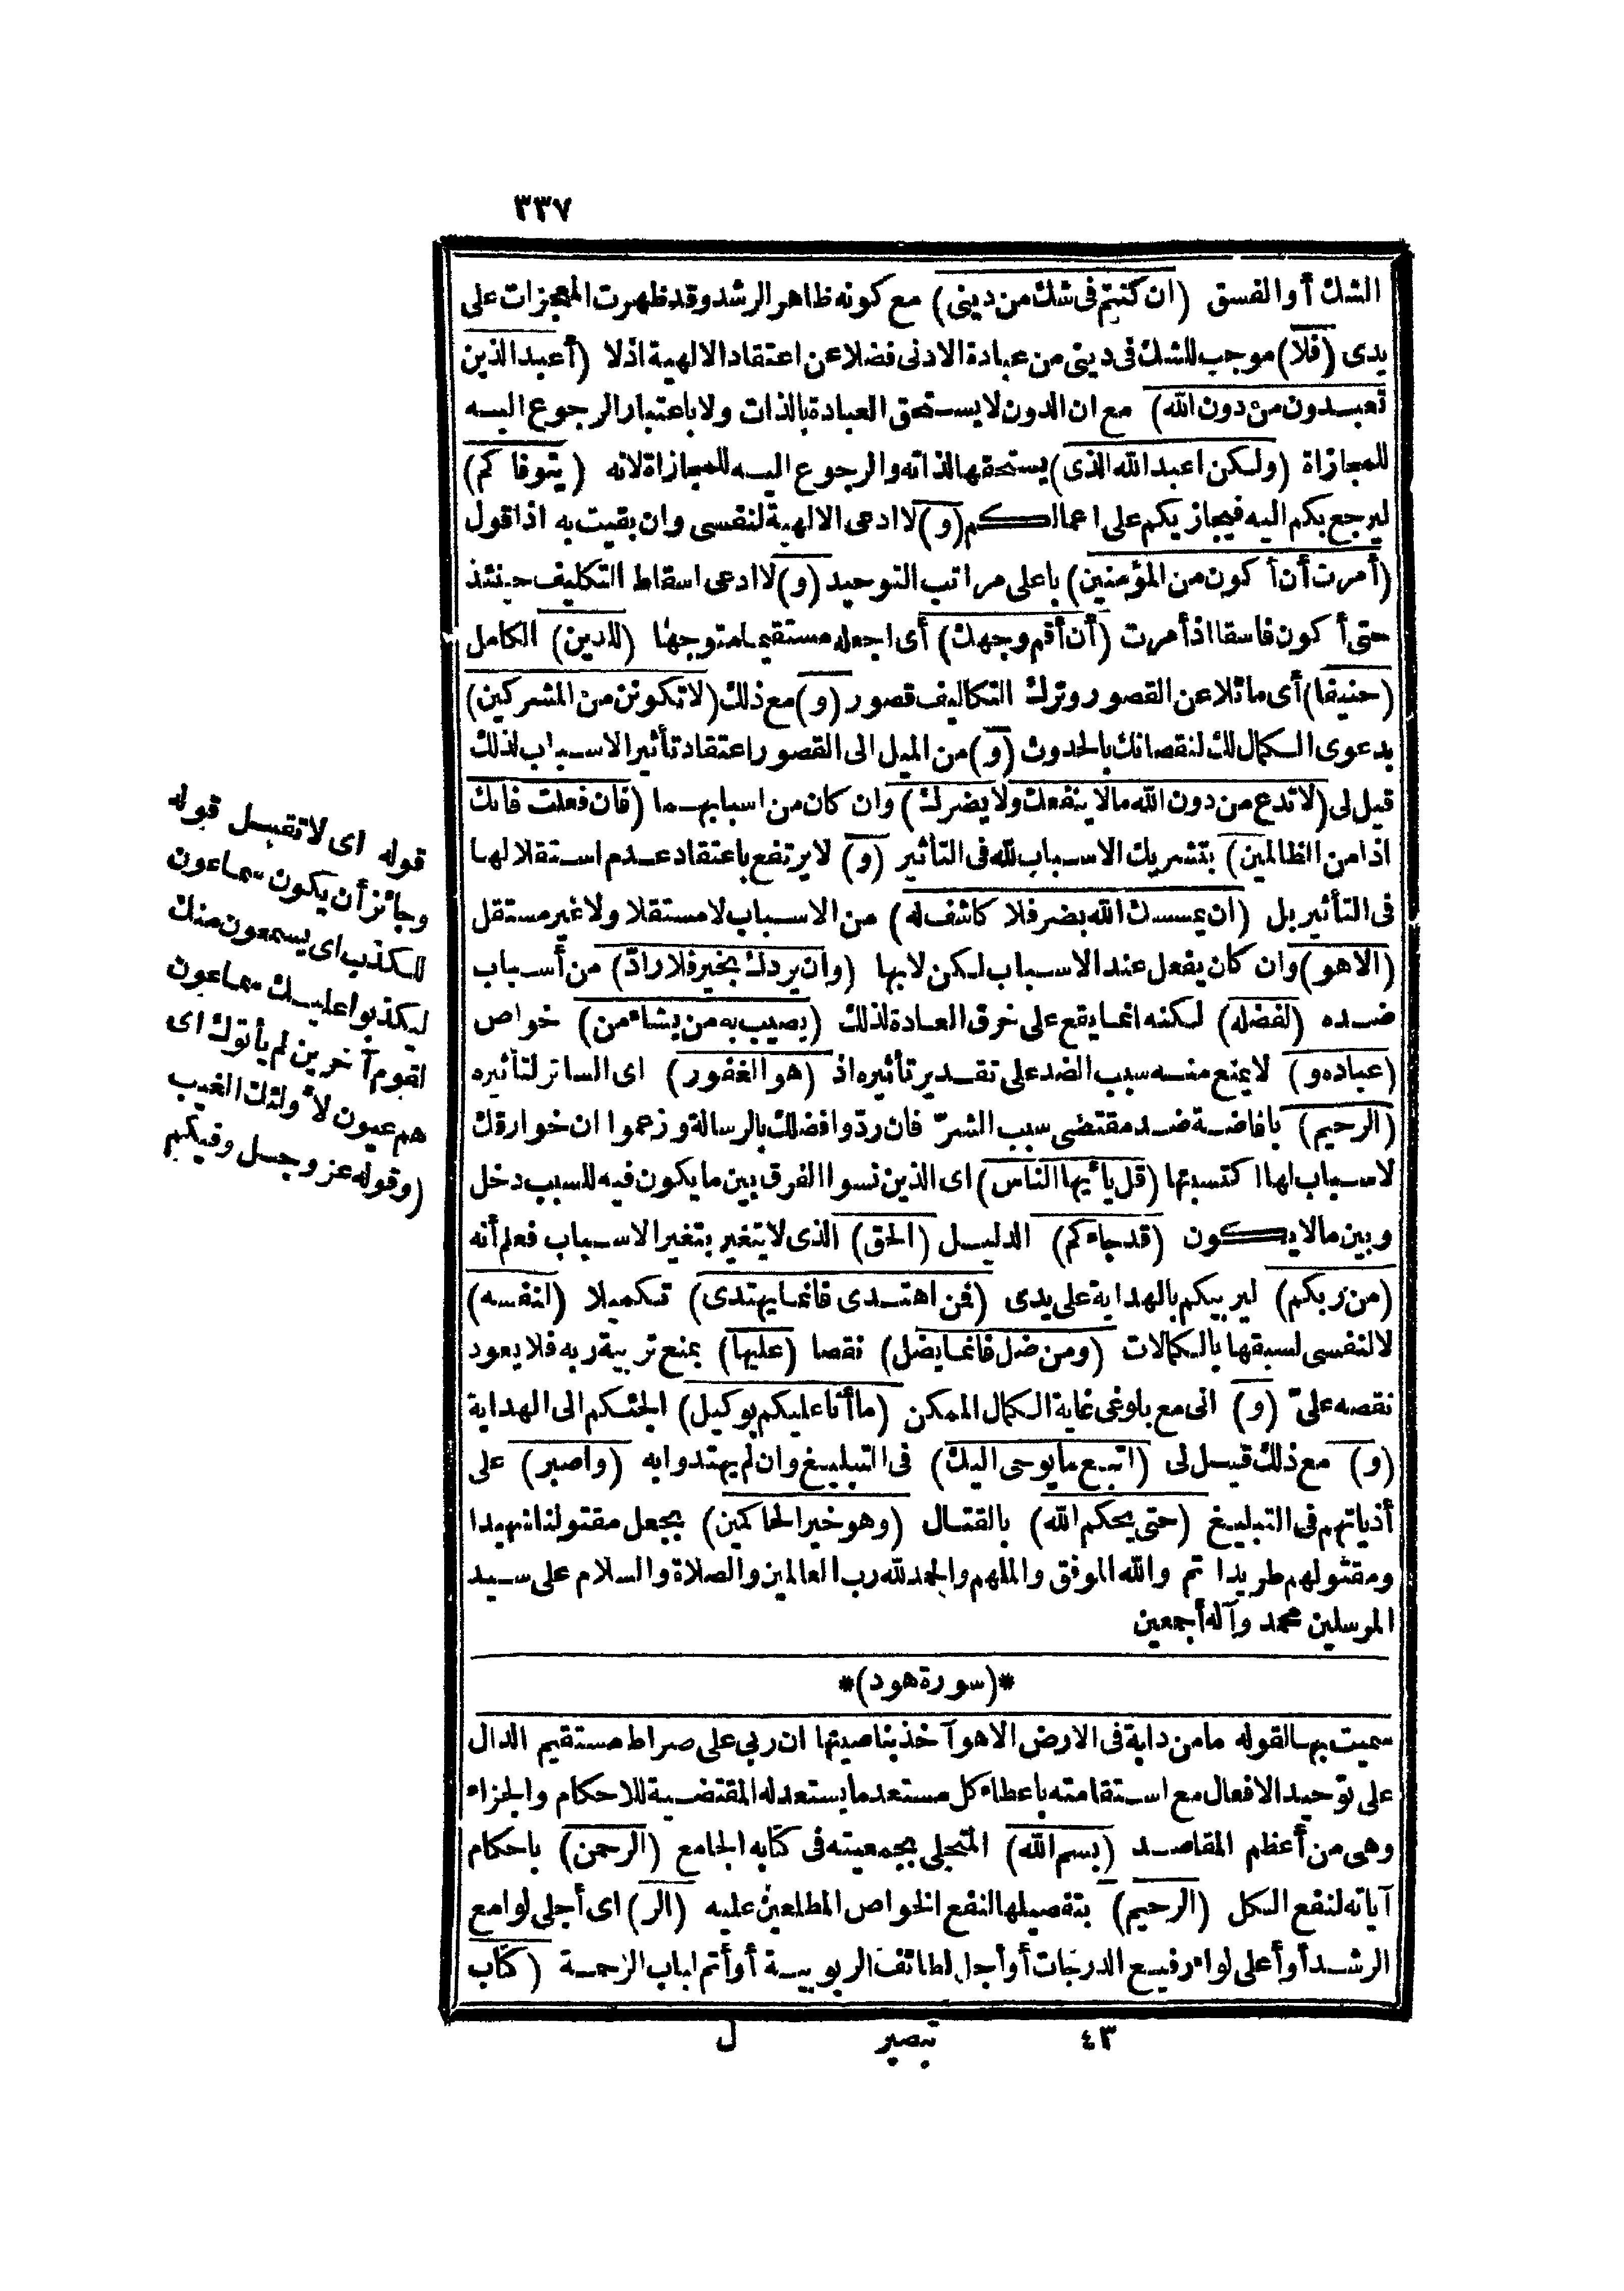 ٣٣٧
الشك أو الفسق (ان كنتم فى شك من دينى) مع كونه ظاهر الرشد وقد ظهرت المعجزات على
يدى (فلا) موجب للشك فى دينى من عبادة الادنى فضلا عن اعتقاد الالهية اذ لا (أعبد الذين
تعبدون من دون الله) مع ان الدون لا يستحق العبادة بالذات ولا باعتبار الرجوع اليه
للمجازاة (ولكن اعبد الله الذى) يستحقها لذاته والرجوع اليه للمجازاة لانه (يتوفاكم)
ليرجع بكم اليه فيجازيكم على اعمالكم (و) لا ادعى الالهية لنفسى وان بقيت به اذ اقول
(أمرت أن أكون من المؤمنين) باعلى مراتب التوحيد (و) لا ادعى اسقاط التكليف حينئذ
حتى أكون فاسقا اذ أمرت (أن أقم وجهك) أى اجعله مستقيما متوجها (للدين) الكامل
(حنيفا) أى مائلا عن القصور وترك التكاليف قصور (و) مع ذلك (لا تكونن من المشركين)
بدعوى الكمال لك لنقصانك بالحدوث (و) من الميل الى القصور اعتقاد تأثير الاسباب لذلك
قيل لى (لا تدع من دون الله ما لا ينفعك ولا يضرك) وان كان من اسبابهما (فان فعلت فانك
اذا من الظالمين) بتشريك الاسباب لله فى التأثير (و) لا يرتفع باعتقاد عدم استقلالها
فى التأثير بل (ان يمسسك الله بضر فلا كاشف له) من الاسباب لا مستقلا ولا غير مستقل
(الا هو) وان كان يفعل عند الاسباب لكن لا بها (وان يردك بخير فلا رادّ) من أسباب
ضده (لفضله) لكنه انما يقع على خرق العادة لذلك (يصيب به من يشاء من) خواص
(عباده و) لا يمنع منه سبب الضد على تقدير تأثيره اذ (هو الغفور) اى الساتر لتأثيره
(الرحيم) بافاضة ضد مقتضى سبب الشرّ فان ردّوا فضلك بالرسالة وزعموا ان خوارقك
لاسباب لها اكتسبتها (قل يأيها الناس) اى الذين نسوا الفرق بين ما يكون فيه للسبب دخل
وبين ما لا يكون (قد جاءكم) الدليل (الحق) الذى لا يتغير بتغير الاسباب فعلم أنه
(من ربكم) ليربيكم بالهداية على يدى (فمن اهتدى فانما يهتدى) تكميلا (لنفسه)
لا لنفسى لسبقها بالكمالات (ومن ضل فانما يضل) نقصا (عليها) بمنع تربية ربه فلا يعود
نقصه علىّ (و) انى مع بلوغى غاية الكمال الممكن (ما أنا عليكم بوكيل) الجئكم الى الهداية
(و) مع ذلك قيل لى (اتبع ما يوحى اليك) فى التبليغ وان لم يهتدوا به (واصبر) على
أذياتهم فى التبليغ (حتى يحكم الله) بالقتال (وهو خير الحاكمين) بجعل مقتولنا شهيدا
ومقتولهم طريدا تم والله الموفق والملهم والحمد لله رب العالمين والصلاة والسلام على سيد
المرسلين محمد وآله أجمعين
*(سورة هود)*
سميت بها لقوله ما من دابة فى الارض الا هو آخذ بناصيتها ان ربى على صراط مستقيم الدال
على توحيد الافعال مع استقامته باعطاء كل مستعد ما يستعد له المقتضية للاحكام والجزاء
وهى من أعظم المقاصد (بسم الله) المتجلى بجمعيته فى كتابه الجامع (الرحمن) باحكام
آياته لنفع الكل (الرحيم) بتفصيلها لنفع الخواص المطلعين عليه (الر) اى أجلى لوامع
الرشد أو أعلى لواء رفيع الدرجات أو أجل لطائف الربوبية أو أتم لباب الرحمة (كتاب
قوله اى لا تقبل قوله
وجائز أن يكون سماعون
للكذب اى يسمعون منك
ليكذبوا عليك سماعون
لقوم آخرين لم يأتوك اى
هم عيون لاولئك الغيب
(وقوله عز وجل وفيكم
٤٣ تبصير ل